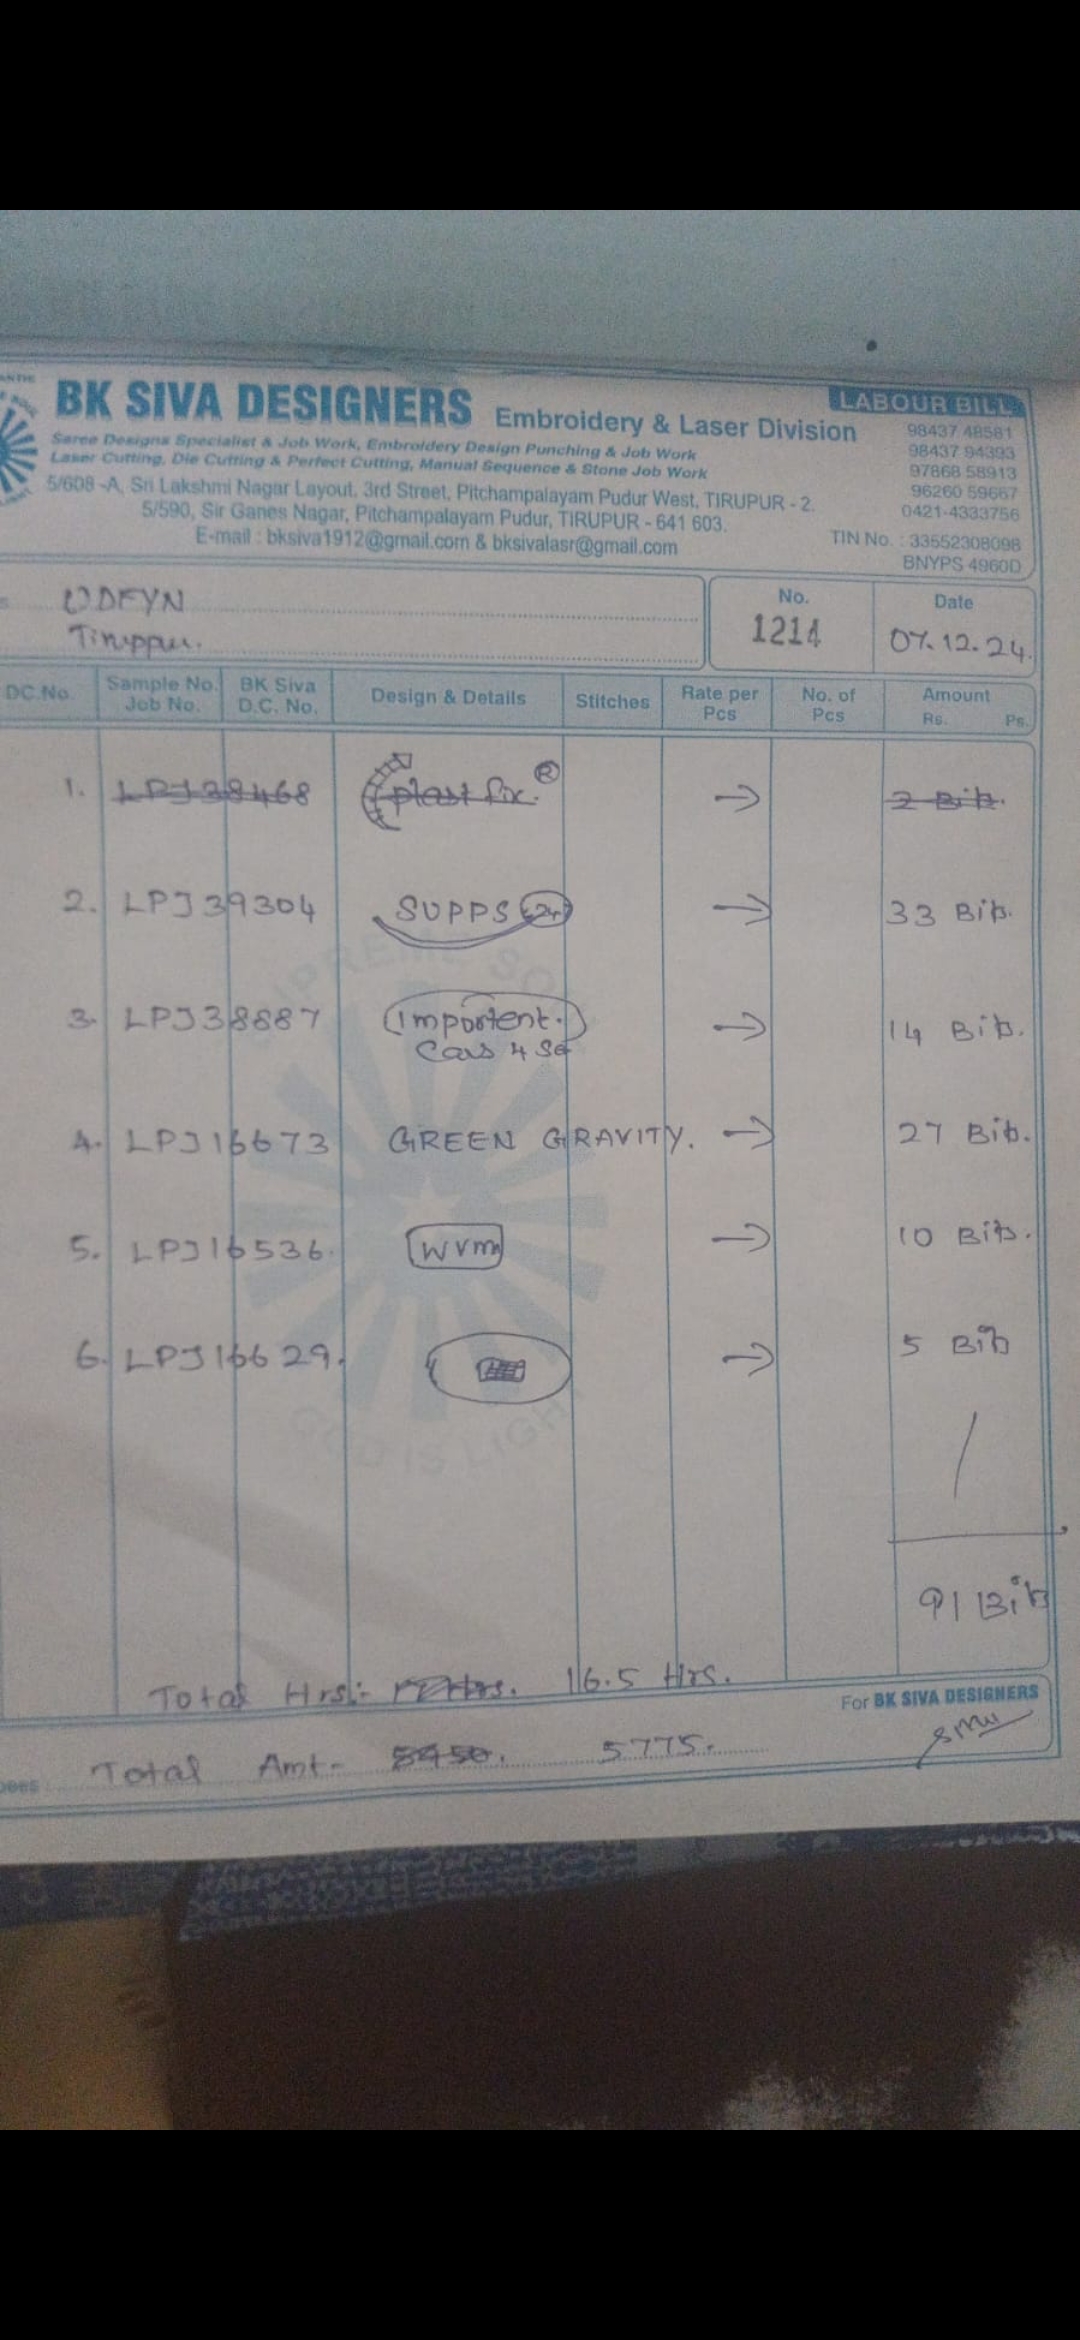 BK SIVA DESIGNERS Embroidery & Laser Division
LABOUR BILL
Saree Designs Specialist & Job Work, Embroidery Design Punching & Job Work
Laser Cutting, Die Cutting & Perfect Cutting, Manual Sequence & Stone Job Work
5/608 -A, Sri Lakshmi Nagar Layout, 3rd Street, Pitchampalayam Pudur West, TIRUPUR - 2.
5/590, Sir Ganes Nagar, Pitchampalayam Pudur, TIRUPUR - 641 603.
E-mail : bksiva1912@gmail.com & bksivalasr@gmail.com
98437 48581
98437 94393
97868 58913
96260 59667
0421-4333756
TIN No. : 33552308098
BNYPS 4960D
UDFYN
Tiruppur.
No.
1214
Date
07.12.24.
DC.No. Sample No. Job No. BK Siva D.C. No. Design & Details Stitches Rate per Pcs No. of Pcs Amount Rs. Ps.
1. LPJ38468 plast fix. ® → 2 Bit.
2. LPJ39304 SUPPS 24 → 33 Bit.
3. LPJ38887 Importent. → 14 Bit.
4. LPJ16673 GREEN GRAVITY. → 27 Bit.
5. LPJ16536. WVM → 10 Bit.
6. LPJ16629. → 5 Bit
SUPREME SO
GOD IS LIGH
91 Bit
Total Hrs:- 16.5 Hrs.
For BK SIVA DESIGNERS
Total Amt- 5950. 5775.